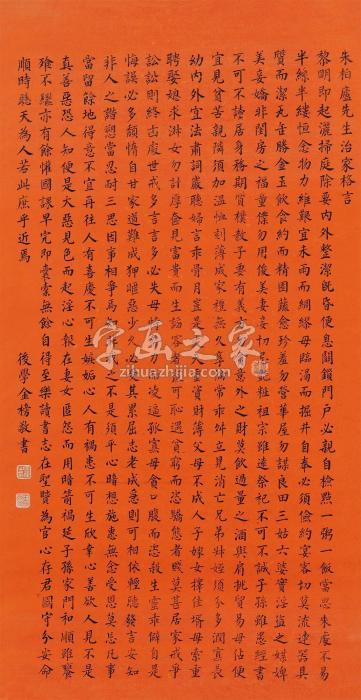 朱柏廬先生治家格言
黎明即起灑掃庭除要內外整潔既昏便息關鎖門戶必親自檢點一粥一飯當思來處不易
半絲半縷恒念物力維艱宜未雨而綢繆毋臨渴而掘井自奉必須儉約宴客切莫流連器具
質而潔瓦缶勝金玉飲食約而精園蔬愈珍羞勿營華屋勿謀良田三姑六婆實淫盜之媒婢
美妾嬌非閨房之福童僕勿用俊美妻妾切忌艷粧祖宗雖遠祭祀不可不誠子孫雖愚經書
不可不讀居身務期質樸教子要有義方勿貪意外之財莫飲過量之酒與肩挑貿易毋佔便
宜見貧苦親鄰須加溫恤刻薄成家理無久享倫常乖舛立見消亡兄弟叔姪須分多潤寡長
幼內外宜法肅詞嚴聽婦言乖骨肉豈是丈夫重資財薄父母不成人子嫁女擇佳壻毋索重
聘娶媳求淑女勿計厚奩見富貴而生諂容者最可恥遇貧窮而恣驕態者賤莫甚居家戒爭
訟訟則終凶處世戒多言言多必失毋恃勢力而凌逼孤寡毋貪口腹而恣殺生靈乖僻自是
悔誤必多頹惰自甘家道難成狎昵惡少久必受其累屈志老成急則可相依輕聽發言安知
非人之譖愬當忍耐三思因事相爭焉知非我之不是須平心暗想施惠無念受恩莫忘凡事
當留餘地得意不宜再往人有喜慶不可生嫉妬心人有禍患不可生欣幸心善欲人見不是
真善惡恐人知便是大惡見色而起淫心報在妻女匿怨而用暗箭禍延子孫家門和順雖饔
飧不繼亦有餘懽國課早完即囊橐無餘自得至樂讀書志在聖賢為官心存君國守分安命
順時聽天為人若此庶乎近焉
後學金榜敬書
字画之家
zihuazhijia.com